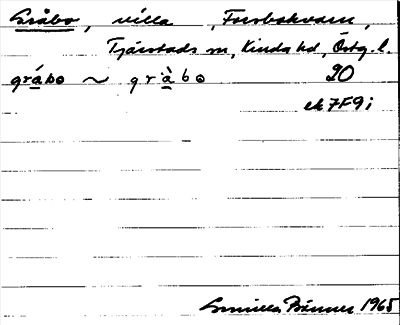 Gråbo, villa, Forsbakvarn,
Tjärstads sn, Kinda hd, Östg. l.
gråbo ~ gràbo 20
ek 7F9i
Gunilla 1965